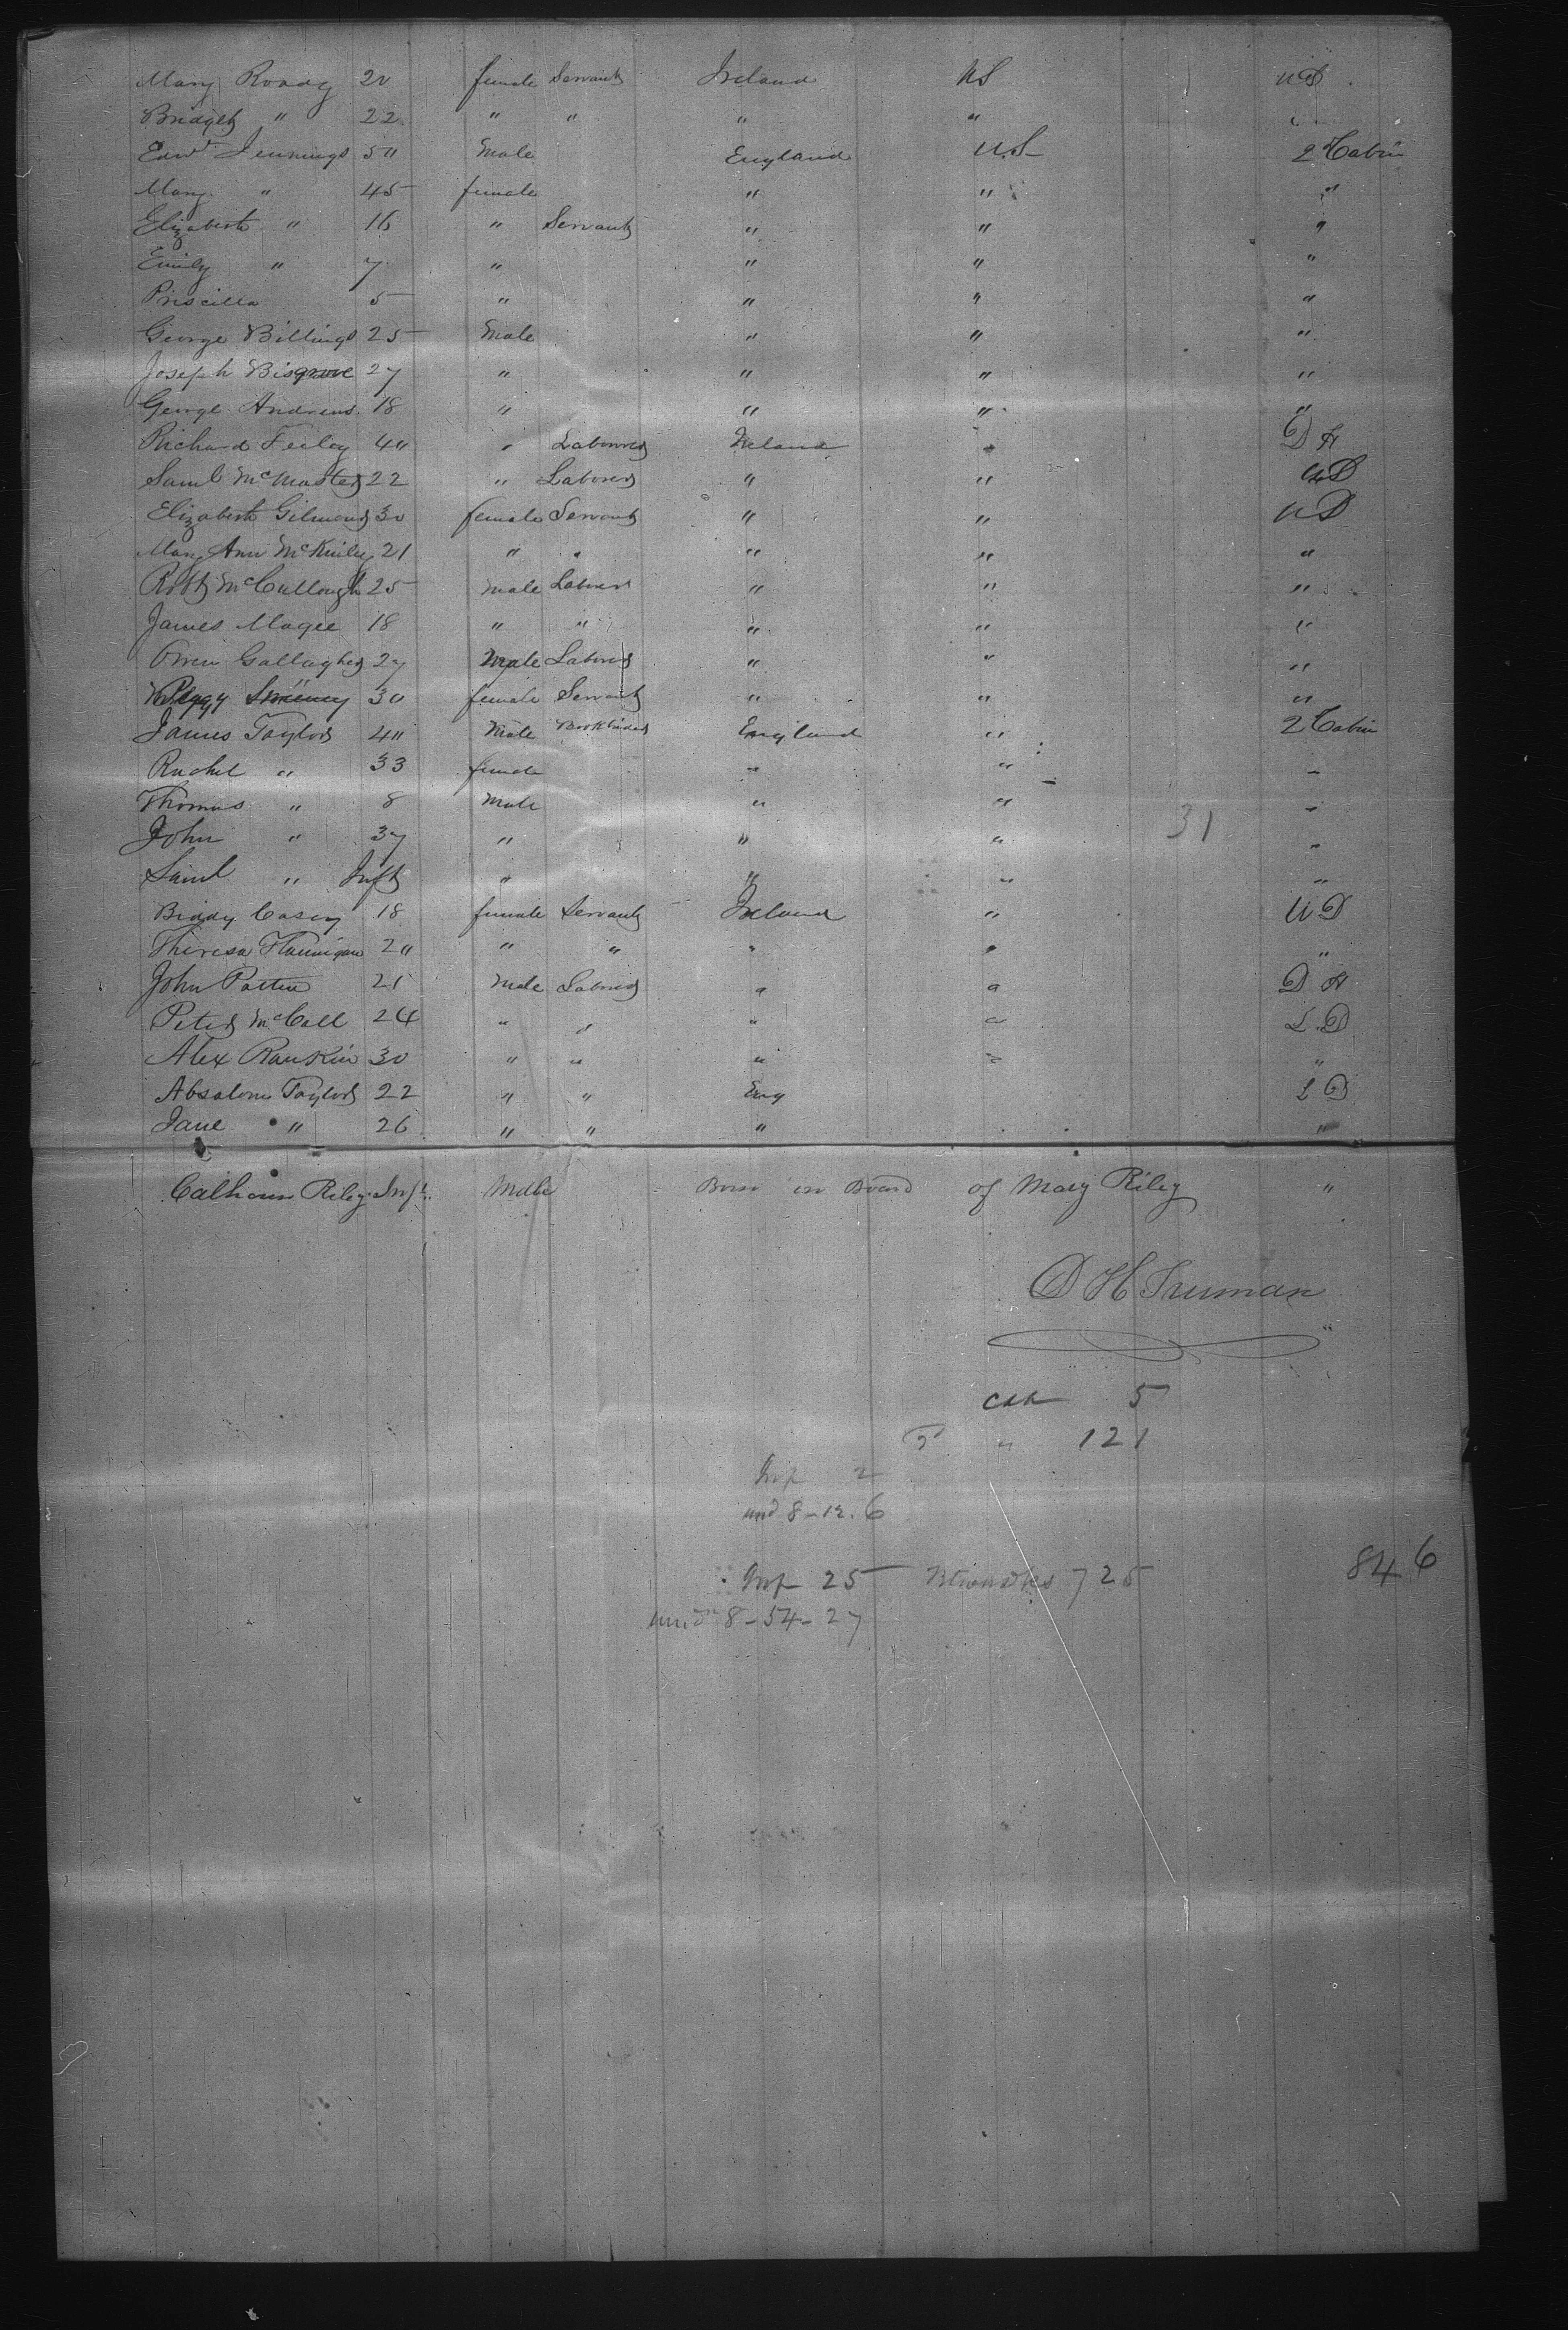 Mary Roady 20 female Servant Ireland US UD
Bridget " 22 " " " " "
Edwd Jennings 50 Male England U.S 2 Cabin
Mary " 45 female " " "
Elizabeth " 16 " Servant " " "
Emily " 7 " " " "
Priscilla 5 " " " "
George Billings 25 Male " " "
Joseph Bisgrove 27 " " " "
George Andrews 18 " " " "
Richard Feiley 40 " Labourer Ireland " D H
Saml McMaster 22 " Laborer " " UD
Elizabeth Gilmour 30 female Servant " " UD
Mary Ann McKinley 21 " " " " "
Robt McCullough 25 Male Laborer " " "
James Magee 18 " " " " "
Owen Gallagher 27 Male Laborer " " "
Peggy 30 female Servant " " "
James Taylor 40 Male Bookbinder England " 2 Cabin
Rachel " 33 female " " "
Thomas " 8 Male " " "
John " 37 " " " " 31
Saml " Inft " " " "
Biddy Casey 18 female Servant Ireland " UD
Theresa Flannigan 20 " " " " "
John Patten 21 Male Laborer " " D H
Peter McCall 24 " " " " L.D
Alex Rankin 30 " " " " "
Absalom Taylor 22 " " Eng L D
Jane " 26 " " " "
Calhoun Riley Inft. Male Born on Board of Mary Riley "
D H Truman
Cab 5
2 " 121
Inf 2
und 8-12. 6
Inf 25 725 846
und 8-54-27